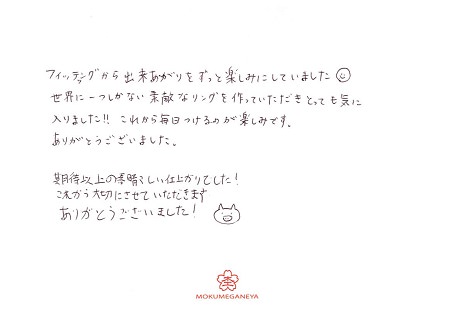 フィッティングから出来あがりをずっと楽しみにしていました
世界に一つしかない素敵なリングを作っていただきとっても気に
入りました!! これから毎日つけるのが楽しみです。
ありがとうございました。
期待以上の素晴らしい仕上がりでした!
これから大切にさせていただきます
ありがとうございました!
杢
MOKUMEGANEYA